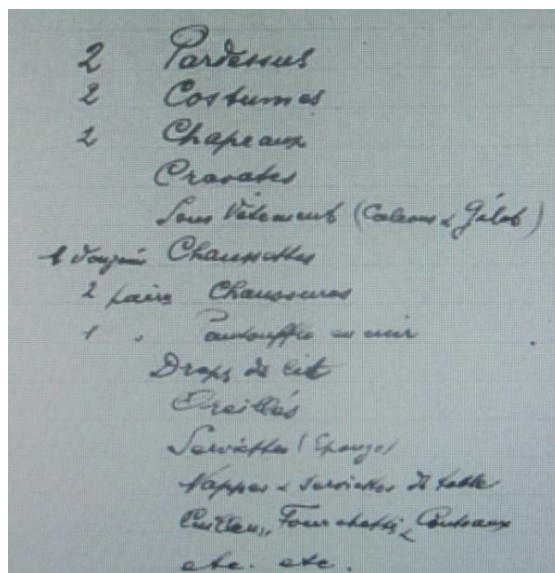 2 Pardessus
2 Costumes
2 Chapeaux
Cravates
Sous Vêtements (Caleçons & Gilets)
1 douzaine Chaussettes
2 paires Chaussures
1 " Pantouffles en cuir
Draps de lit
Oreillés
Serviettes (éponge)
Nappes & serviettes de table
Cuillers, Fourchettes, Couteaux
etc. etc.